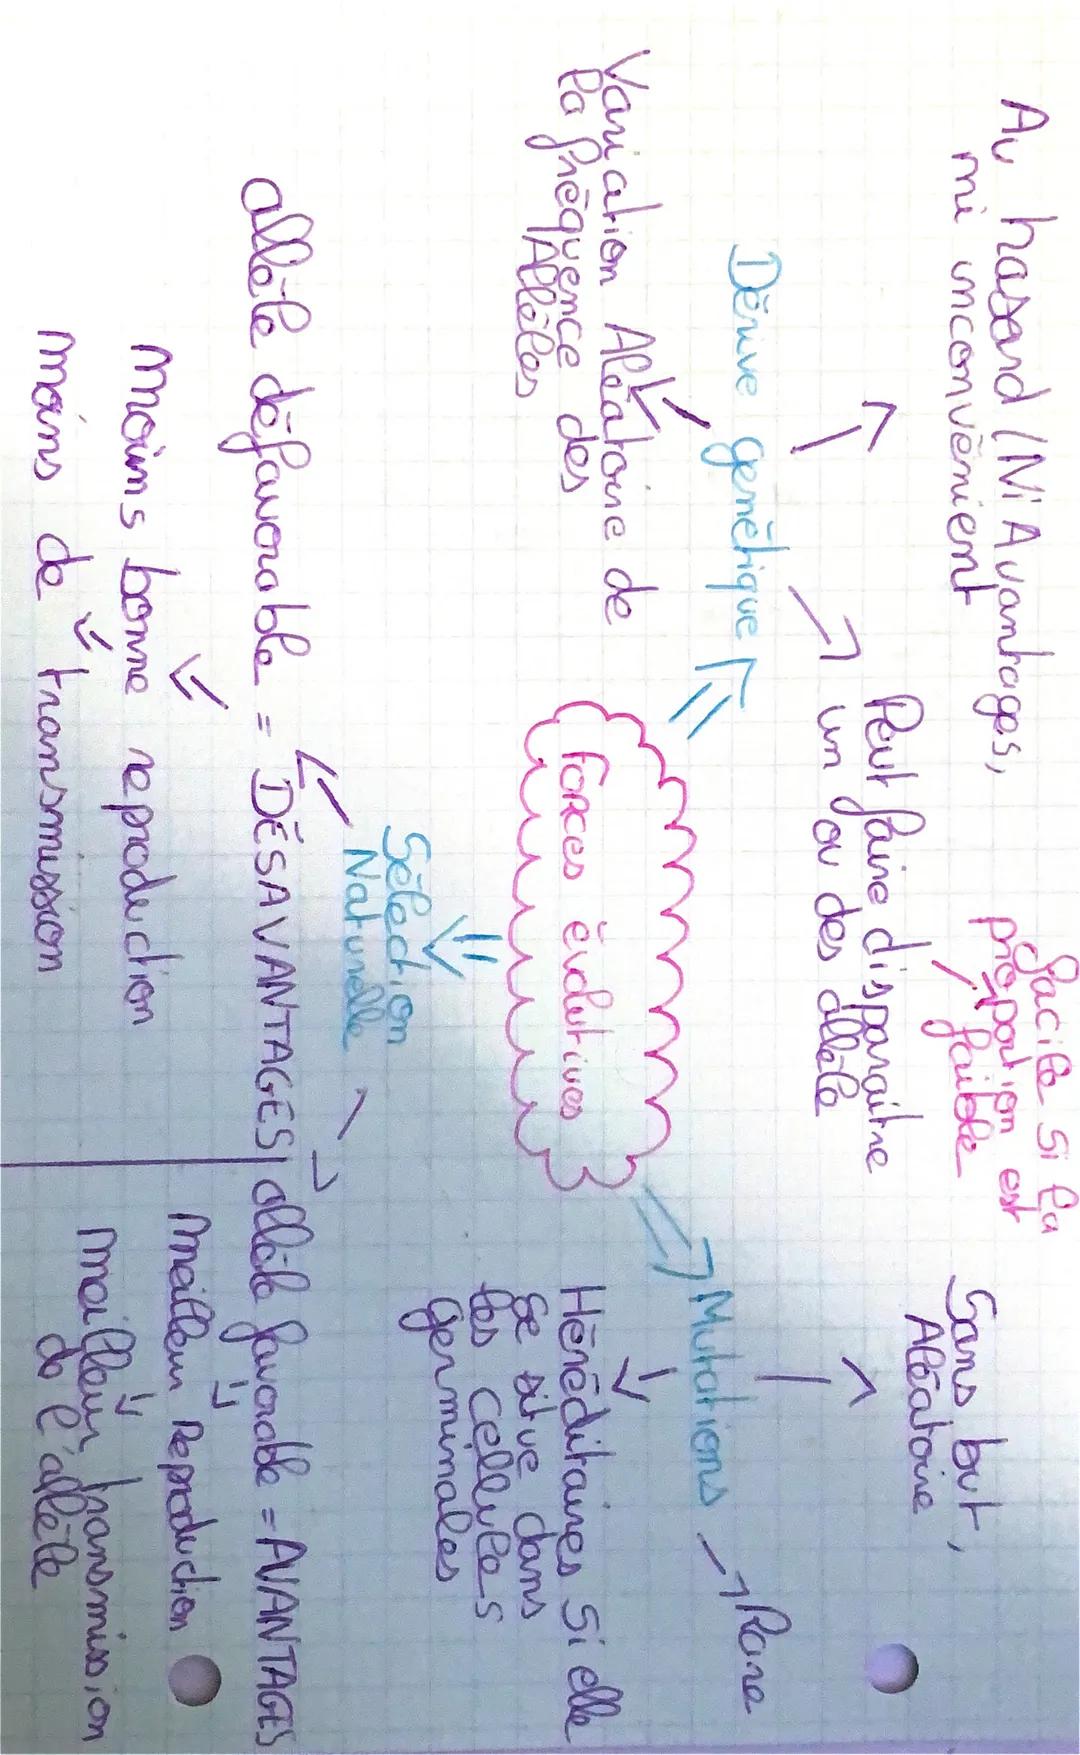 Au hasard (Ni Avantages,
ni inconvénient
Dérive génétique
Variation Aléatoire de
la fréquence des
Allèles
Peut faire disparaître
un ou des allèle
facile si la
proportion est
faible
forces évolutives
Mutations
Sans but,
Aléatoire
Rare
Héréditaires si elle
se situe dans
les cellules
germinales
Sélection
Naturelle
allèle défavorable = DÉSAVANTAGES
moins bonne reproduction
moins de transmission
allèle favorable = AVANTAGES
meilleur Reproduction
meilleur transmission
de l'allèle